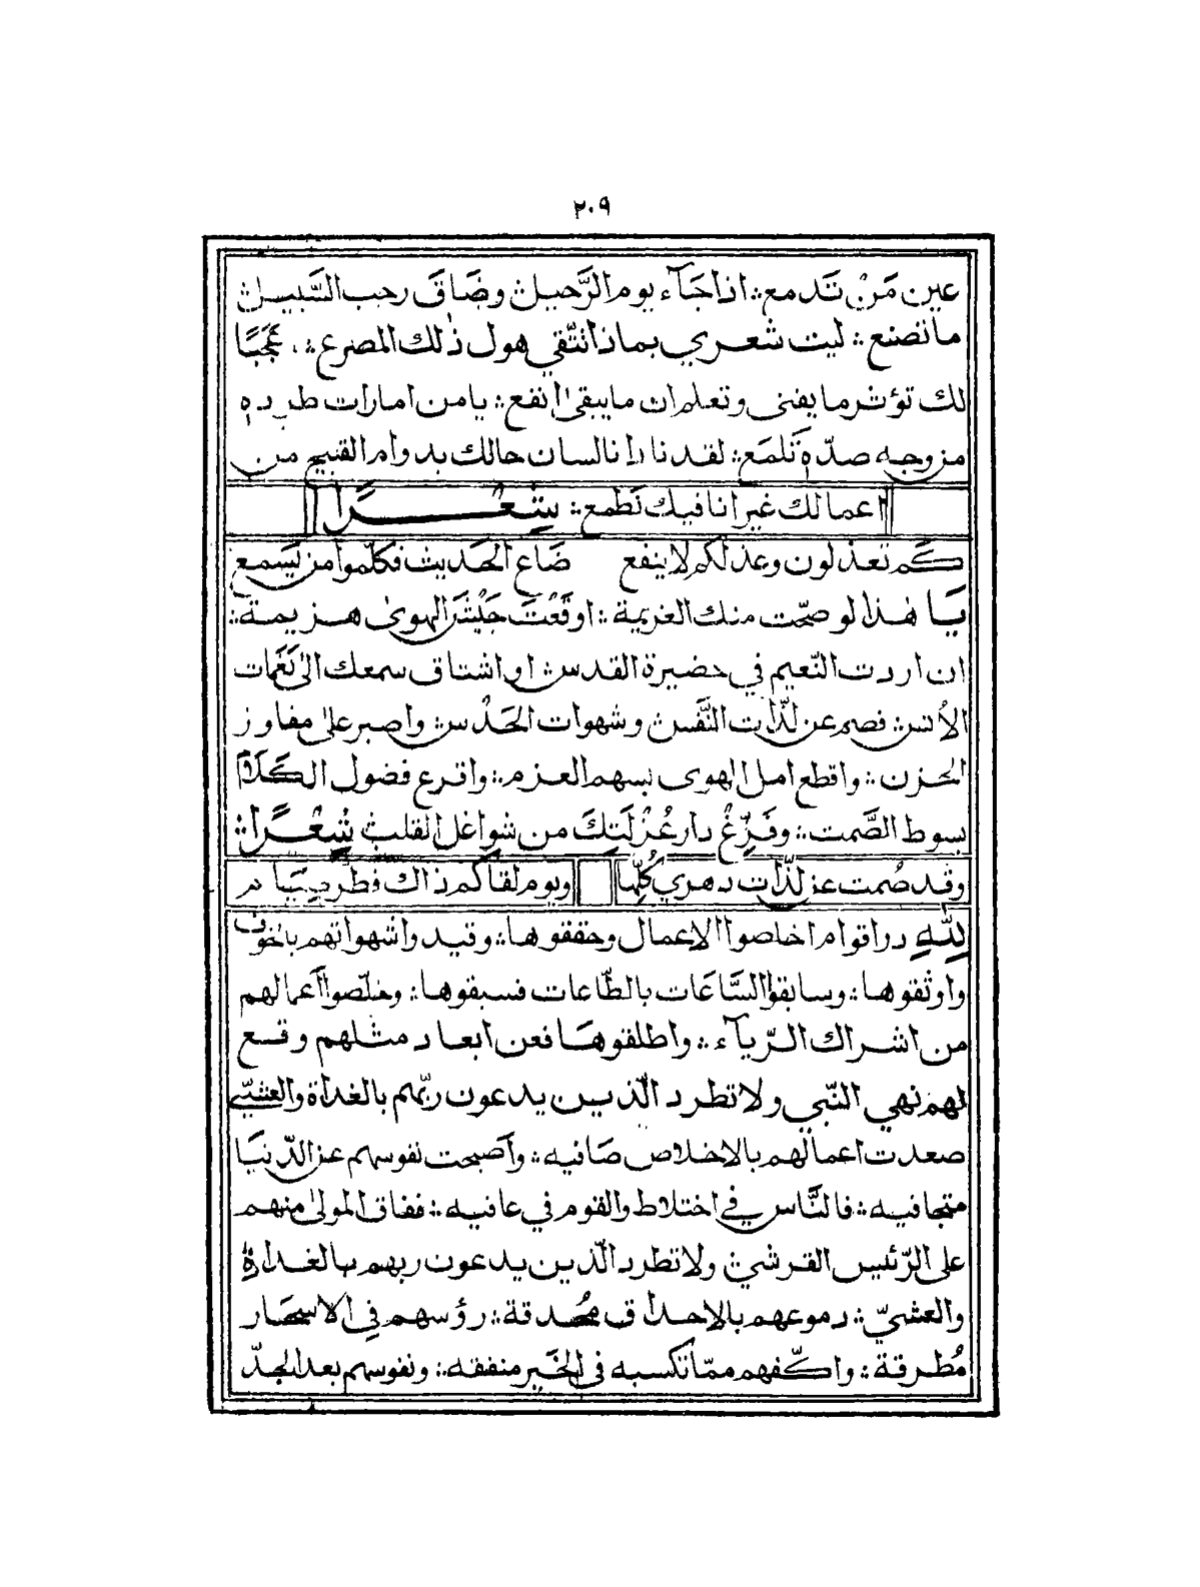 ٢٠٩
عين مَنْ تَدمع ؞ اذا جَآء يوم الرَّحيل ؞ وضَاقَ رحب السَّبيل ؞
ما تصنع ؞ ليت شعري بماذا نتَّقي هول ذٰلك المصرع ؞ عَجَبًا
لك تؤثر ما يفنى وتعلم ان ما يبقى انفع ؞ يا من امارات طرده
من وجه صدّه تَلمَع ؞ لقد نادانا لسان حالك بدوام القبيح من
اعمالك غير انا فيك نَطمع ؞ شِعْرًا
كَم تعذلون وعذلكم لا ينفع ضَاع الحَديث فكلّموا من يَسمع
يَا هٰذا لو صحّت منك العزيمة ؞ اوقَعْتَ جَيْشَ الهوىٰ هزيمة ؞
ان اردت النّعيم في حضيرة القدس ؞ او اشتاق سمعك الىٰ نَغَمات
الأنس ؞ فصم عن لذّات النَّفس ؞ وشهوات الحَدْس ؞ واصبر علىٰ مفاوز
الحزن ؞ واقطع امل الهوى بسهم العزم ؞ واقرع فضول الكَلَام
بسوط الصَّمت ؞ وفَرِّغْ دار عُزْلَتِكَ من شواغل القلب ؞ شِعْرًا ؞
وقد صُمت عن لذّات دهري كُلّها ويوم لقاكم ذاك فطر صيَامي
لِلّٰهِ در اقوام اخلصوا الاعمال وحققوها ؞ وقيدوا شهواتهم بالخوف
واوثقوها ؞ وسابقوا السَّاعَات بالطّاعات فسبقوها ؞ وخلّصوا أعمالهم
من اشراك الرّيآء ؞ واطلقوهَا فعن ابعاد مثلهم وقع
لهم نهي النّبي ولا تطرد الّذين يدعون ربّهم بالغداة والعشيّ
صعدت اعمالهم بالاخلاص صَافيه ؞ وأصبحت نفوسهم عن الدّنيَا
متجافيه ؞ فالنَّاس في اختلاط والقوم في عافيه ؞ ففاق المولىٰ منهم
على الرّئيس القرشيّ ؞ ولا تطرد الّذين يدعون ربهم بالغداة
والعشيّ ؞ دموعهم بالاحداق محُدقة ؞ رؤسهم في الاسحَار
مُطرقة ؞ واكّفهم ممّا تكسبه في الخَير منفقه ؞ ونفوسهم بعد الجدّ